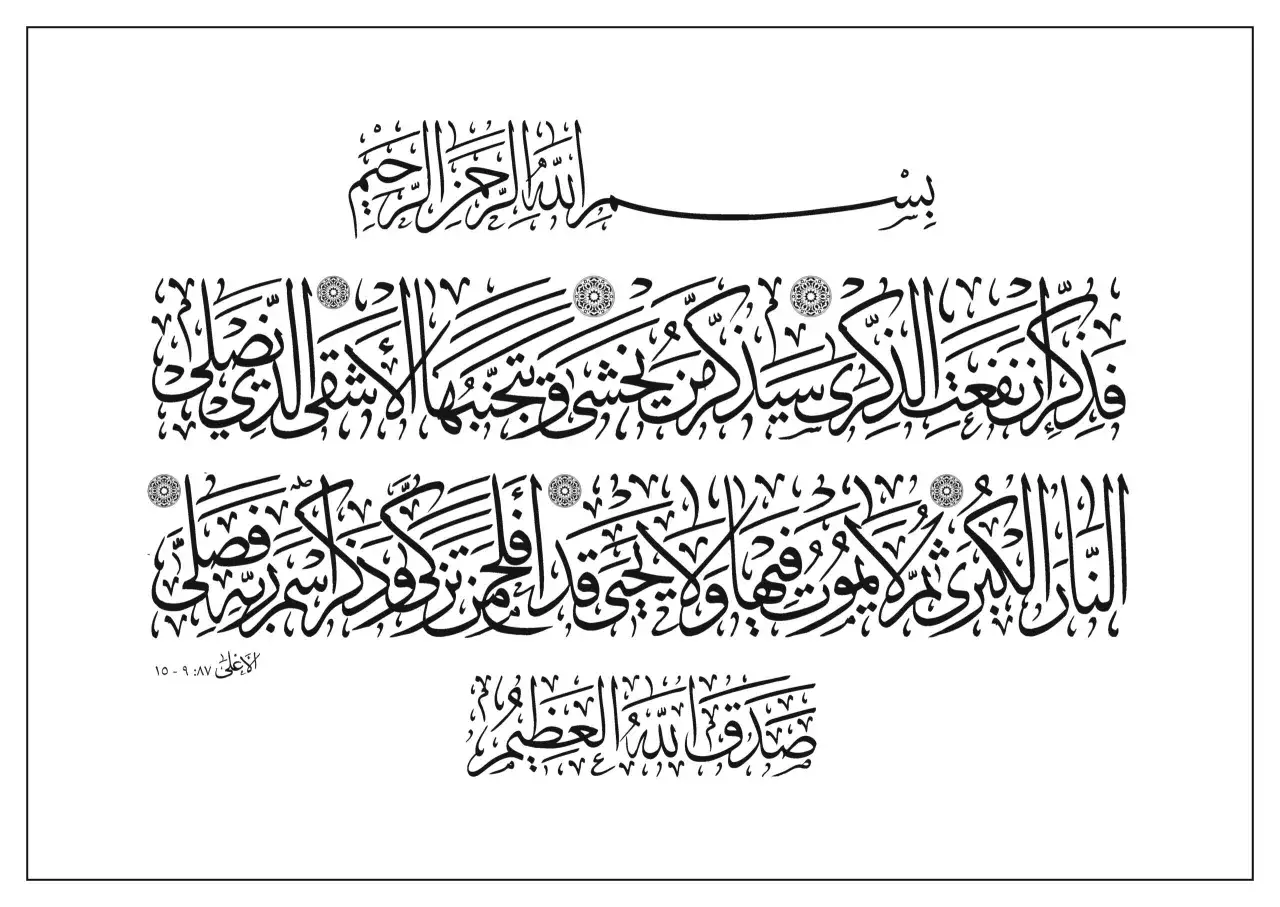 بِسْمِ اللَّهِ الرَّحْمَنِ الرَّحِيمِ
فَذَكِّرْ إِن نَّفَعَتِ الذِّكْرَى سَيَذَّكَّرُ مَن يَخْشَى وَيَتَجَنَّبُهَا الْأَشْقَى الَّذِي يَصْلَى
النَّارَ الْكُبْرَى ثُمَّ لَا يَمُوتُ فِيهَا وَلَا يَحْيَى قَدْ أَفْلَحَ مَن تَزَكَّى وَذَكَرَ اسْمَ رَبِّهِ فَصَلَّى
الأَعْلَى ٨٧: ٩ - ١٥
صَدَقَ اللَّهُ الْعَظِيمُ